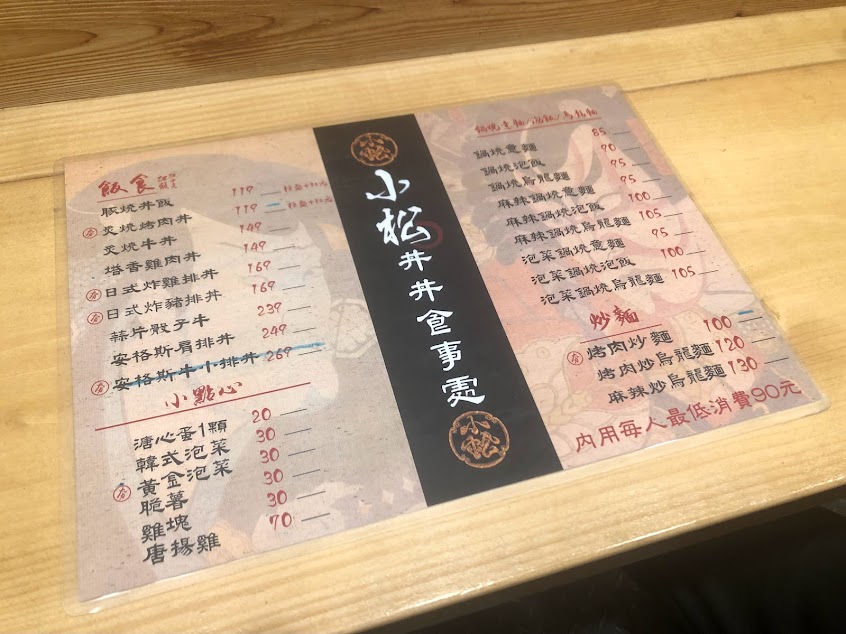 飯食
豚燒丼飯 119
炙燒烤肉丼 119
炙燒牛丼 149
塔香雞肉丼 149
日式炸雞排丼 169
日式炸豬排丼 169
蒜片骰子牛 239
安格斯肩排丼 249
安格斯牛小排丼 269
小點心
溏心蛋1顆 20
韓式泡菜 30
黃金泡菜 30
脆薯 30
雞塊 30
唐揚雞 70
小松
小松丼丼食事處
小松
鍋燒意麵/泡飯/烏龍麵
鍋燒意麵 85
鍋燒泡飯 90
鍋燒烏龍麵 95
麻辣鍋燒意麵 95
麻辣鍋燒泡飯 100
麻辣鍋燒烏龍麵 105
泡菜鍋燒意麵 95
泡菜鍋燒泡飯 100
泡菜鍋燒烏龍麵 105
炒麵
烤肉炒麵 100
烤肉炒烏龍麵 120
麻辣炒烏龍麵 130
內用每人最低消費90元